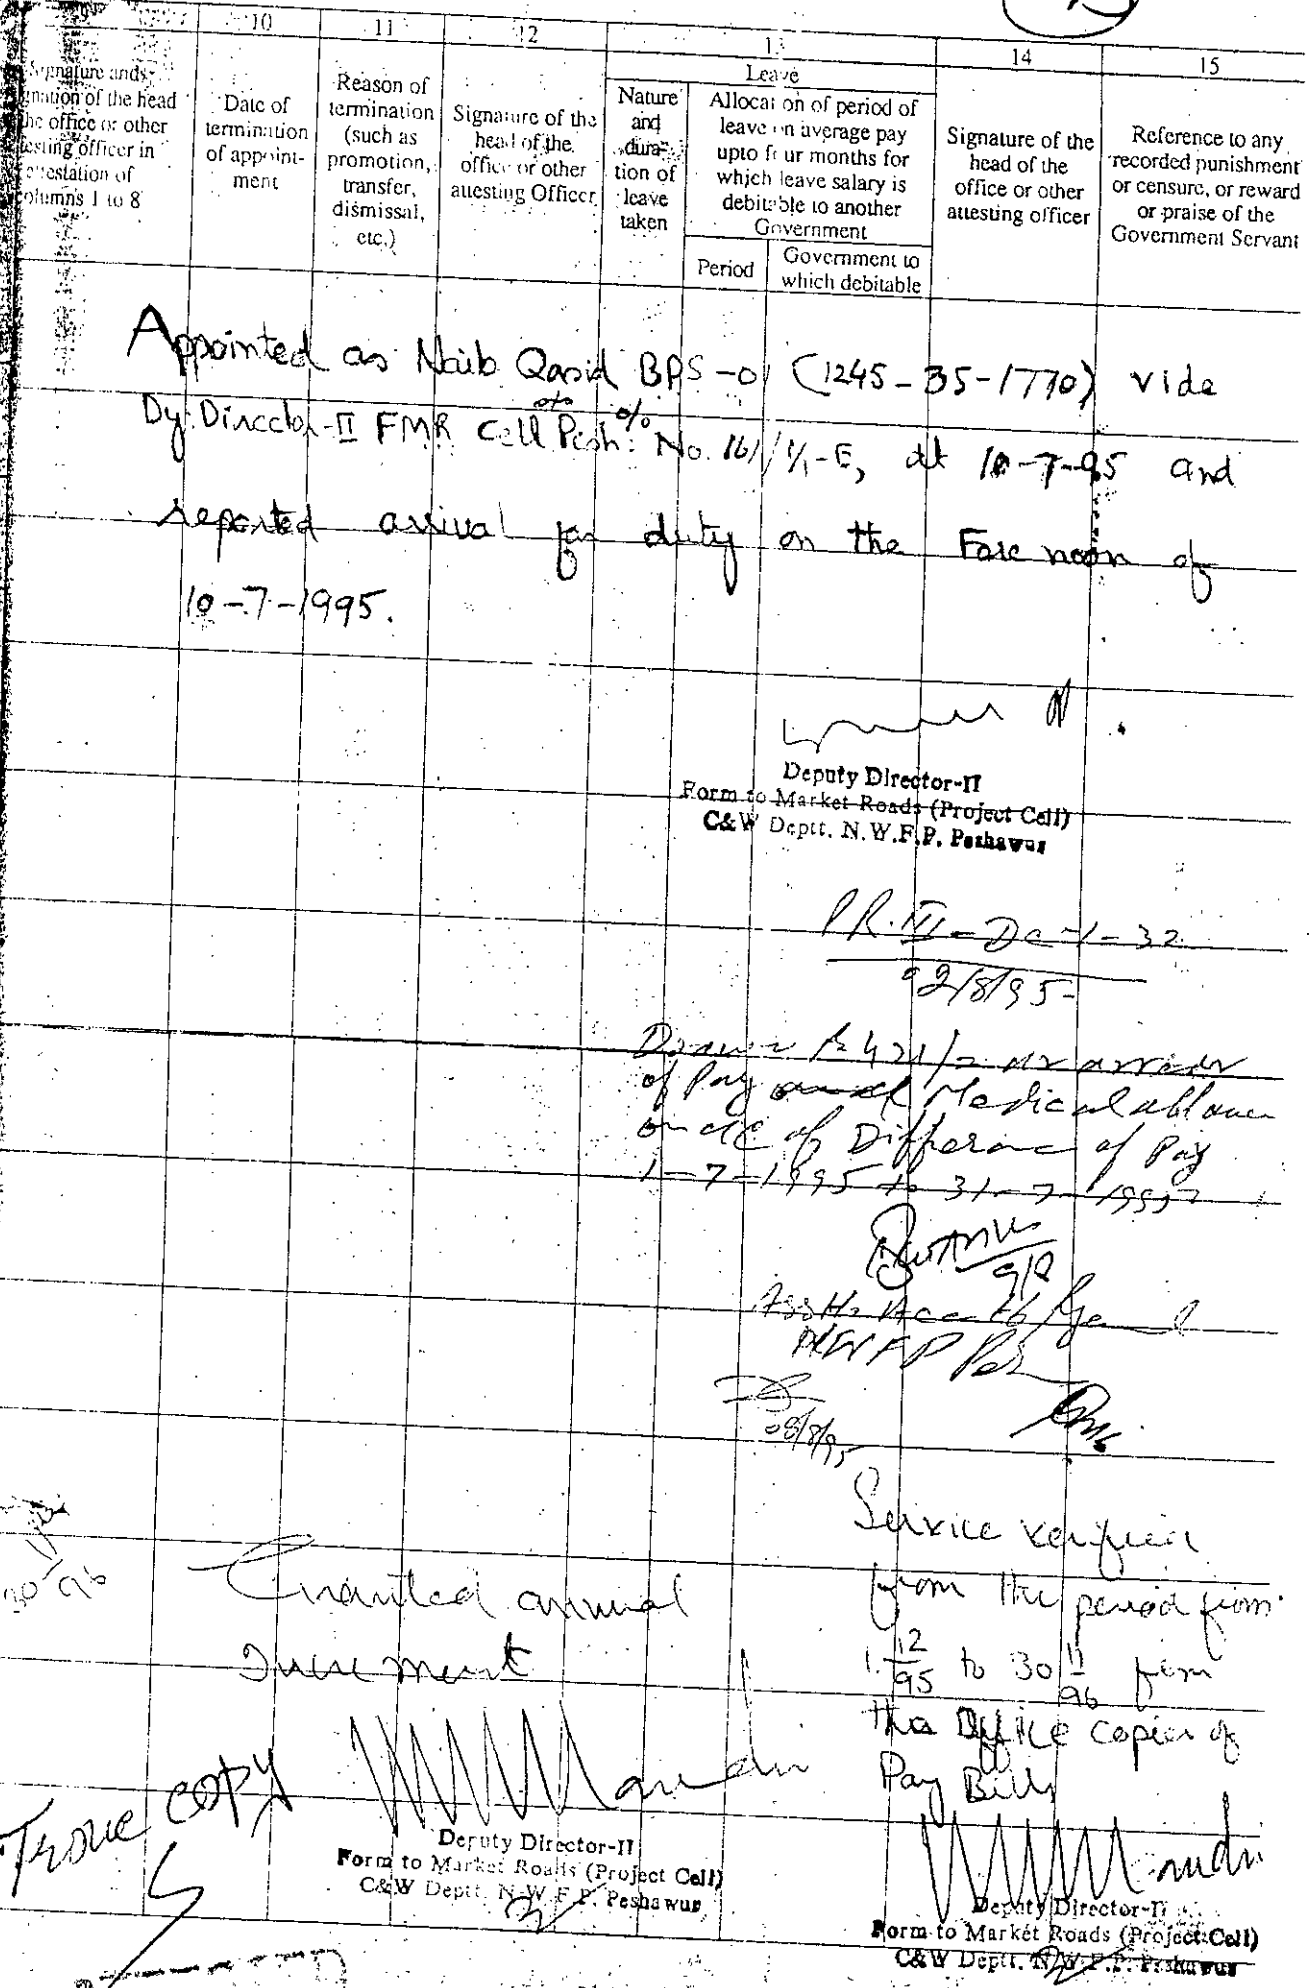 10 11 12 13 14 15
Leave
Signature and
nation of the head
the office or other
testing officer in
attestation of
columns 1 to 8
Date of
termination
of appoint-
ment
Reason of
termination
(such as
promotion,
transfer,
dismissal,
etc.)
Signature of the
head of the
office or other
attesting Officer
Nature
and
dura-
tion of
leave
taken
Allocation of period of
leave on average pay
upto four months for
which leave salary is
debitable to another
Government
Period
Government to
which debitable
Signature of the
head of the
office or other
attesting officer
Reference to any
recorded punishment
or censure, or reward
or praise of the
Government Servant
Appointed as Naib Qasid BPS-01 (1245-35-1770) vide
Dy: Director-II FMR Cell Pesh: No. 161/1/1-E, dt 10-7-95 and
reported arrival for duty on the Fore noon of
10-7-1995.
Deputy Director-II
Form to Market Roads (Project Cell)
C&W Deptt. N.W.F.P. Peshawur
P.R. III-Dc-1-32
92/8/95
421/=
of Pay and Medical allowance
of Difference of Pay
1-7-1995 to 31-7-1995
NWFP
08/8/95
Service verified
from the period from
1.12/95 to 30 11/96 from
the Office copies of
Pay Bills
Granted annual
Increment
Deputy Director-II
Form to Market Roads (Project Cell)
C&W Deptt. N.W.F.P. Peshawur
Deputy Director-II
Form to Market Roads (Project Cell)
C&W Deptt. N.W.F.P. Peshawur
True copy